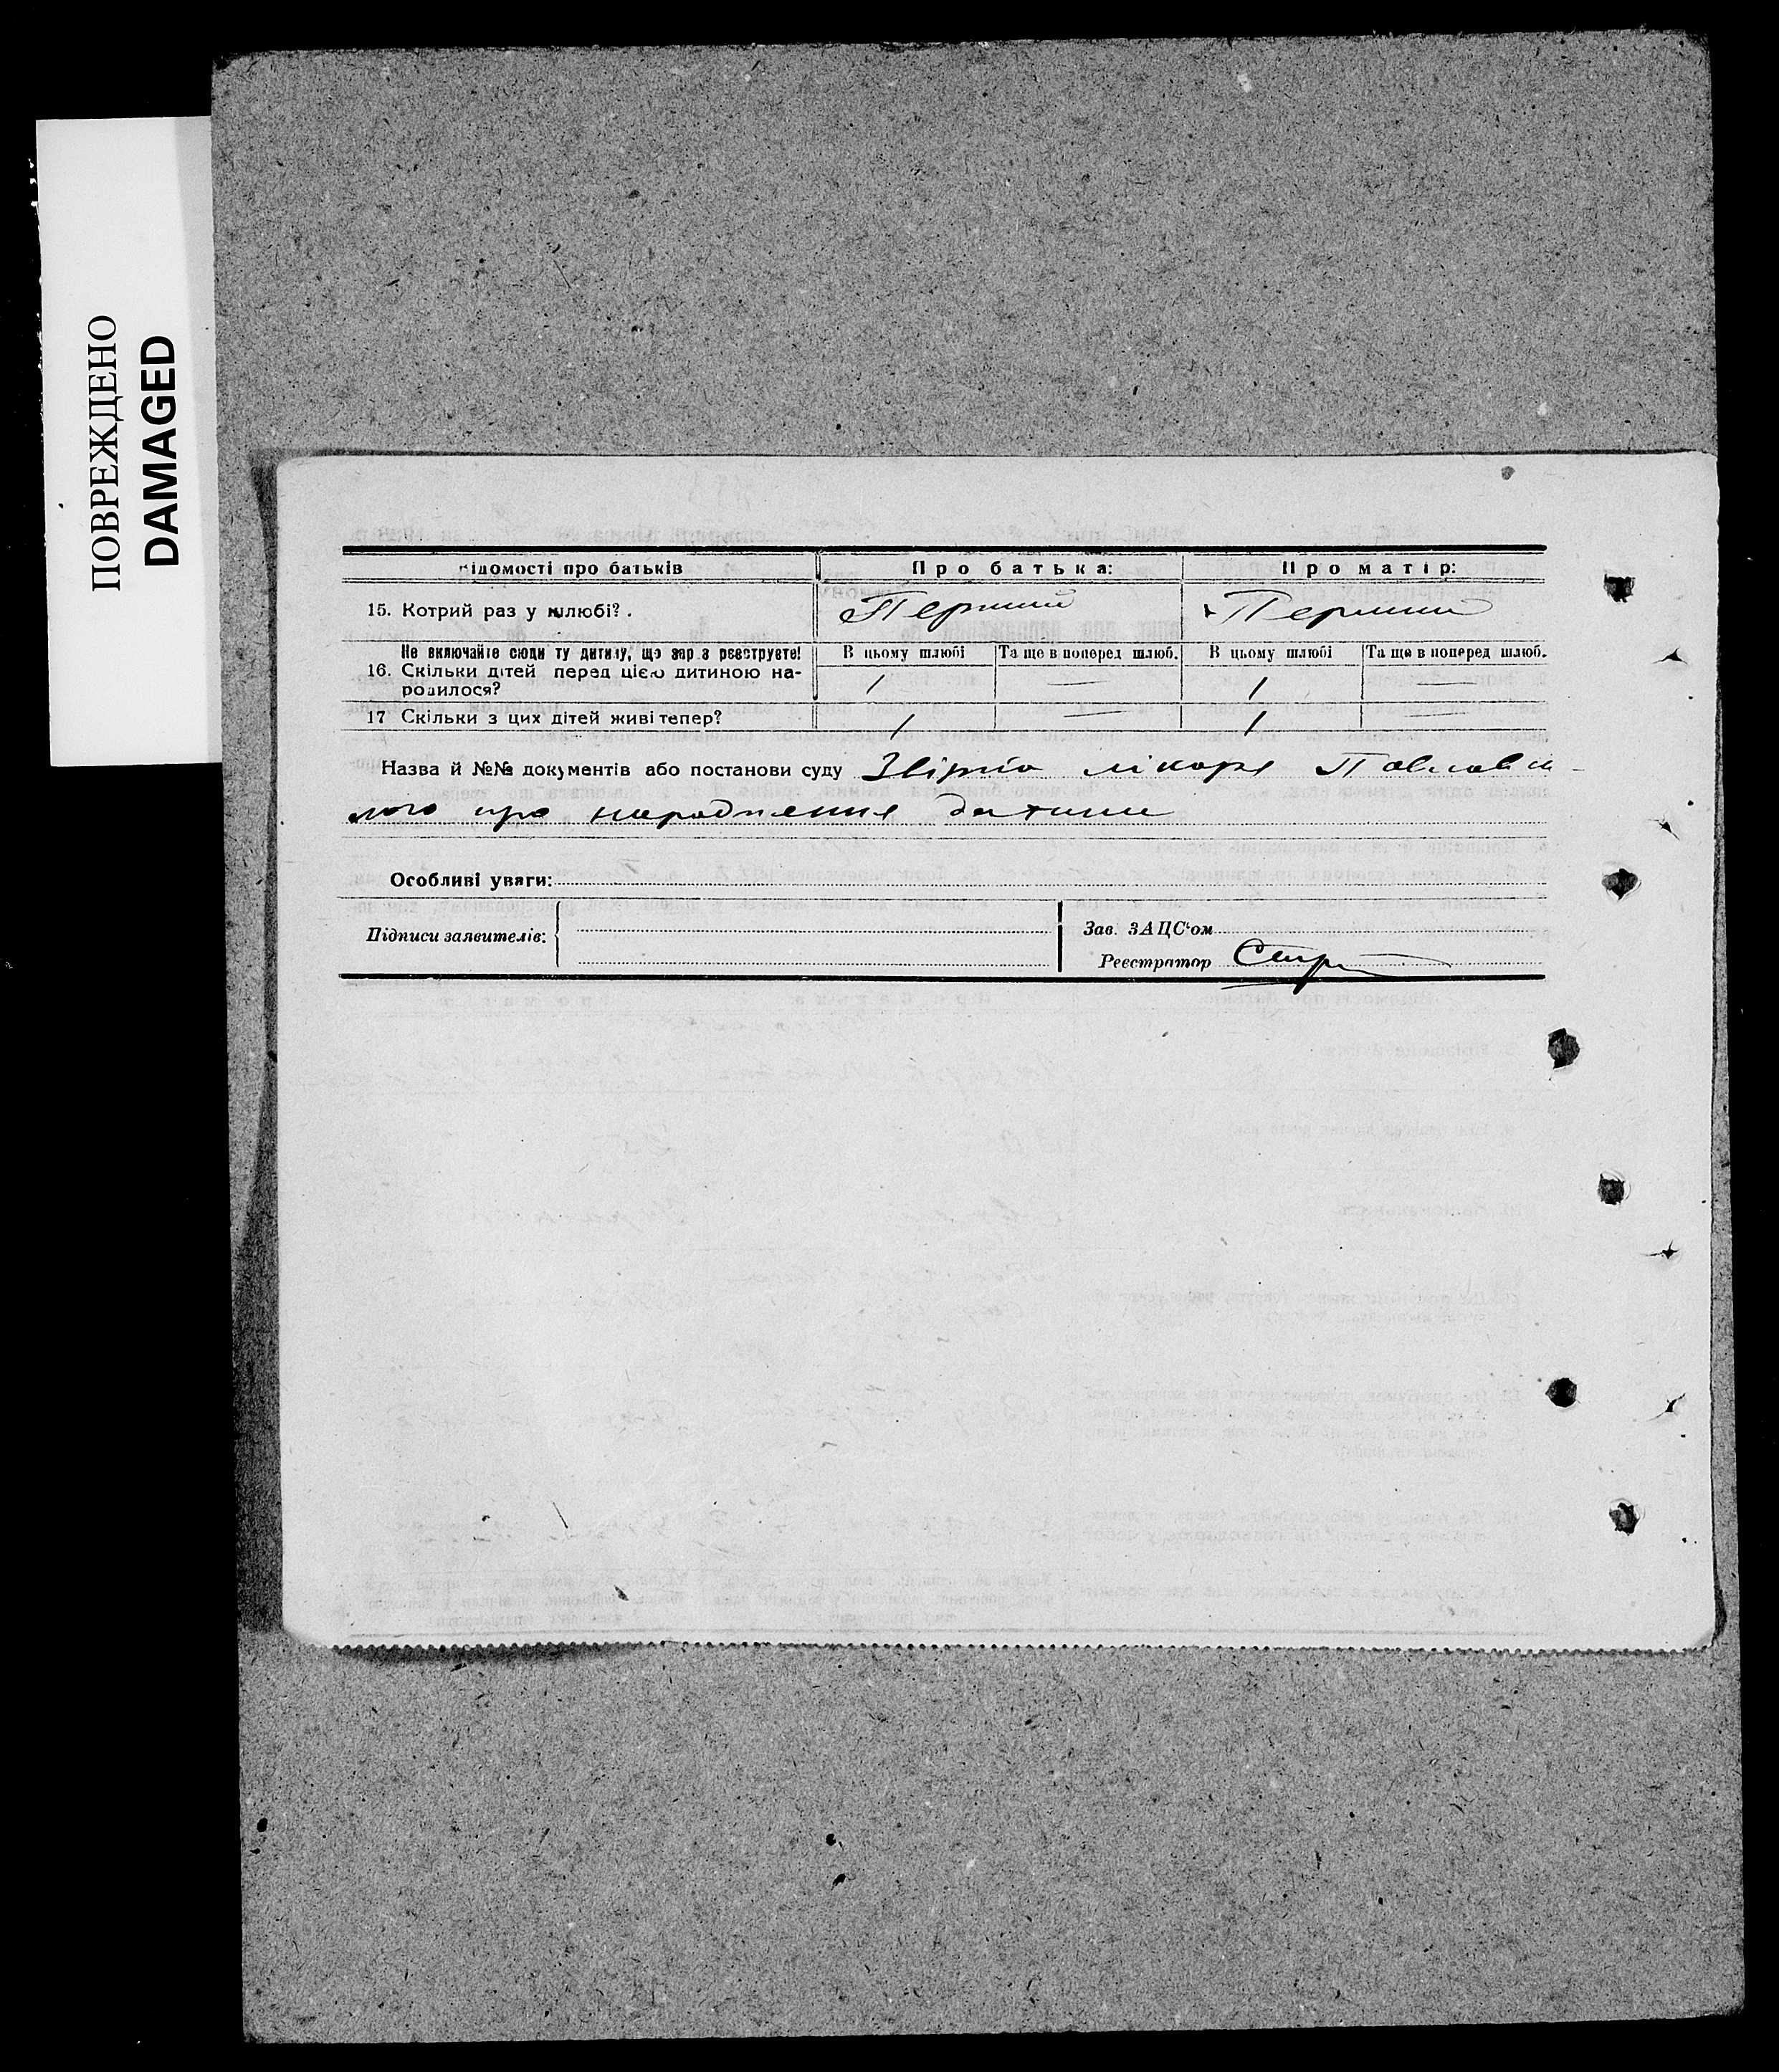 ПОВРЕЖДЕНО
DAMAGED
ідомості про батьків
Про батька:
Про матір:
15. Котрий раз у шлюбі?.
Перший
Перший
Не включайте сюди ту дитину, що зараз реєструєте!
В цьому шлюбі
Та ще в поперед шлюб.
В цьому шлюбі
Та ще в поперед шлюб.
16. Скільки дітей перед цією дитиною на-
родилося?
1
—
1
—
17 Скільки з цих дітей живі тепер?
1
—
1
—
Назва й №№ документів або постанови суду лікаря
про народження
Особливі уваги:
Підписи заявителів:
Зав. ЗАЦС'ом
Реєстратор